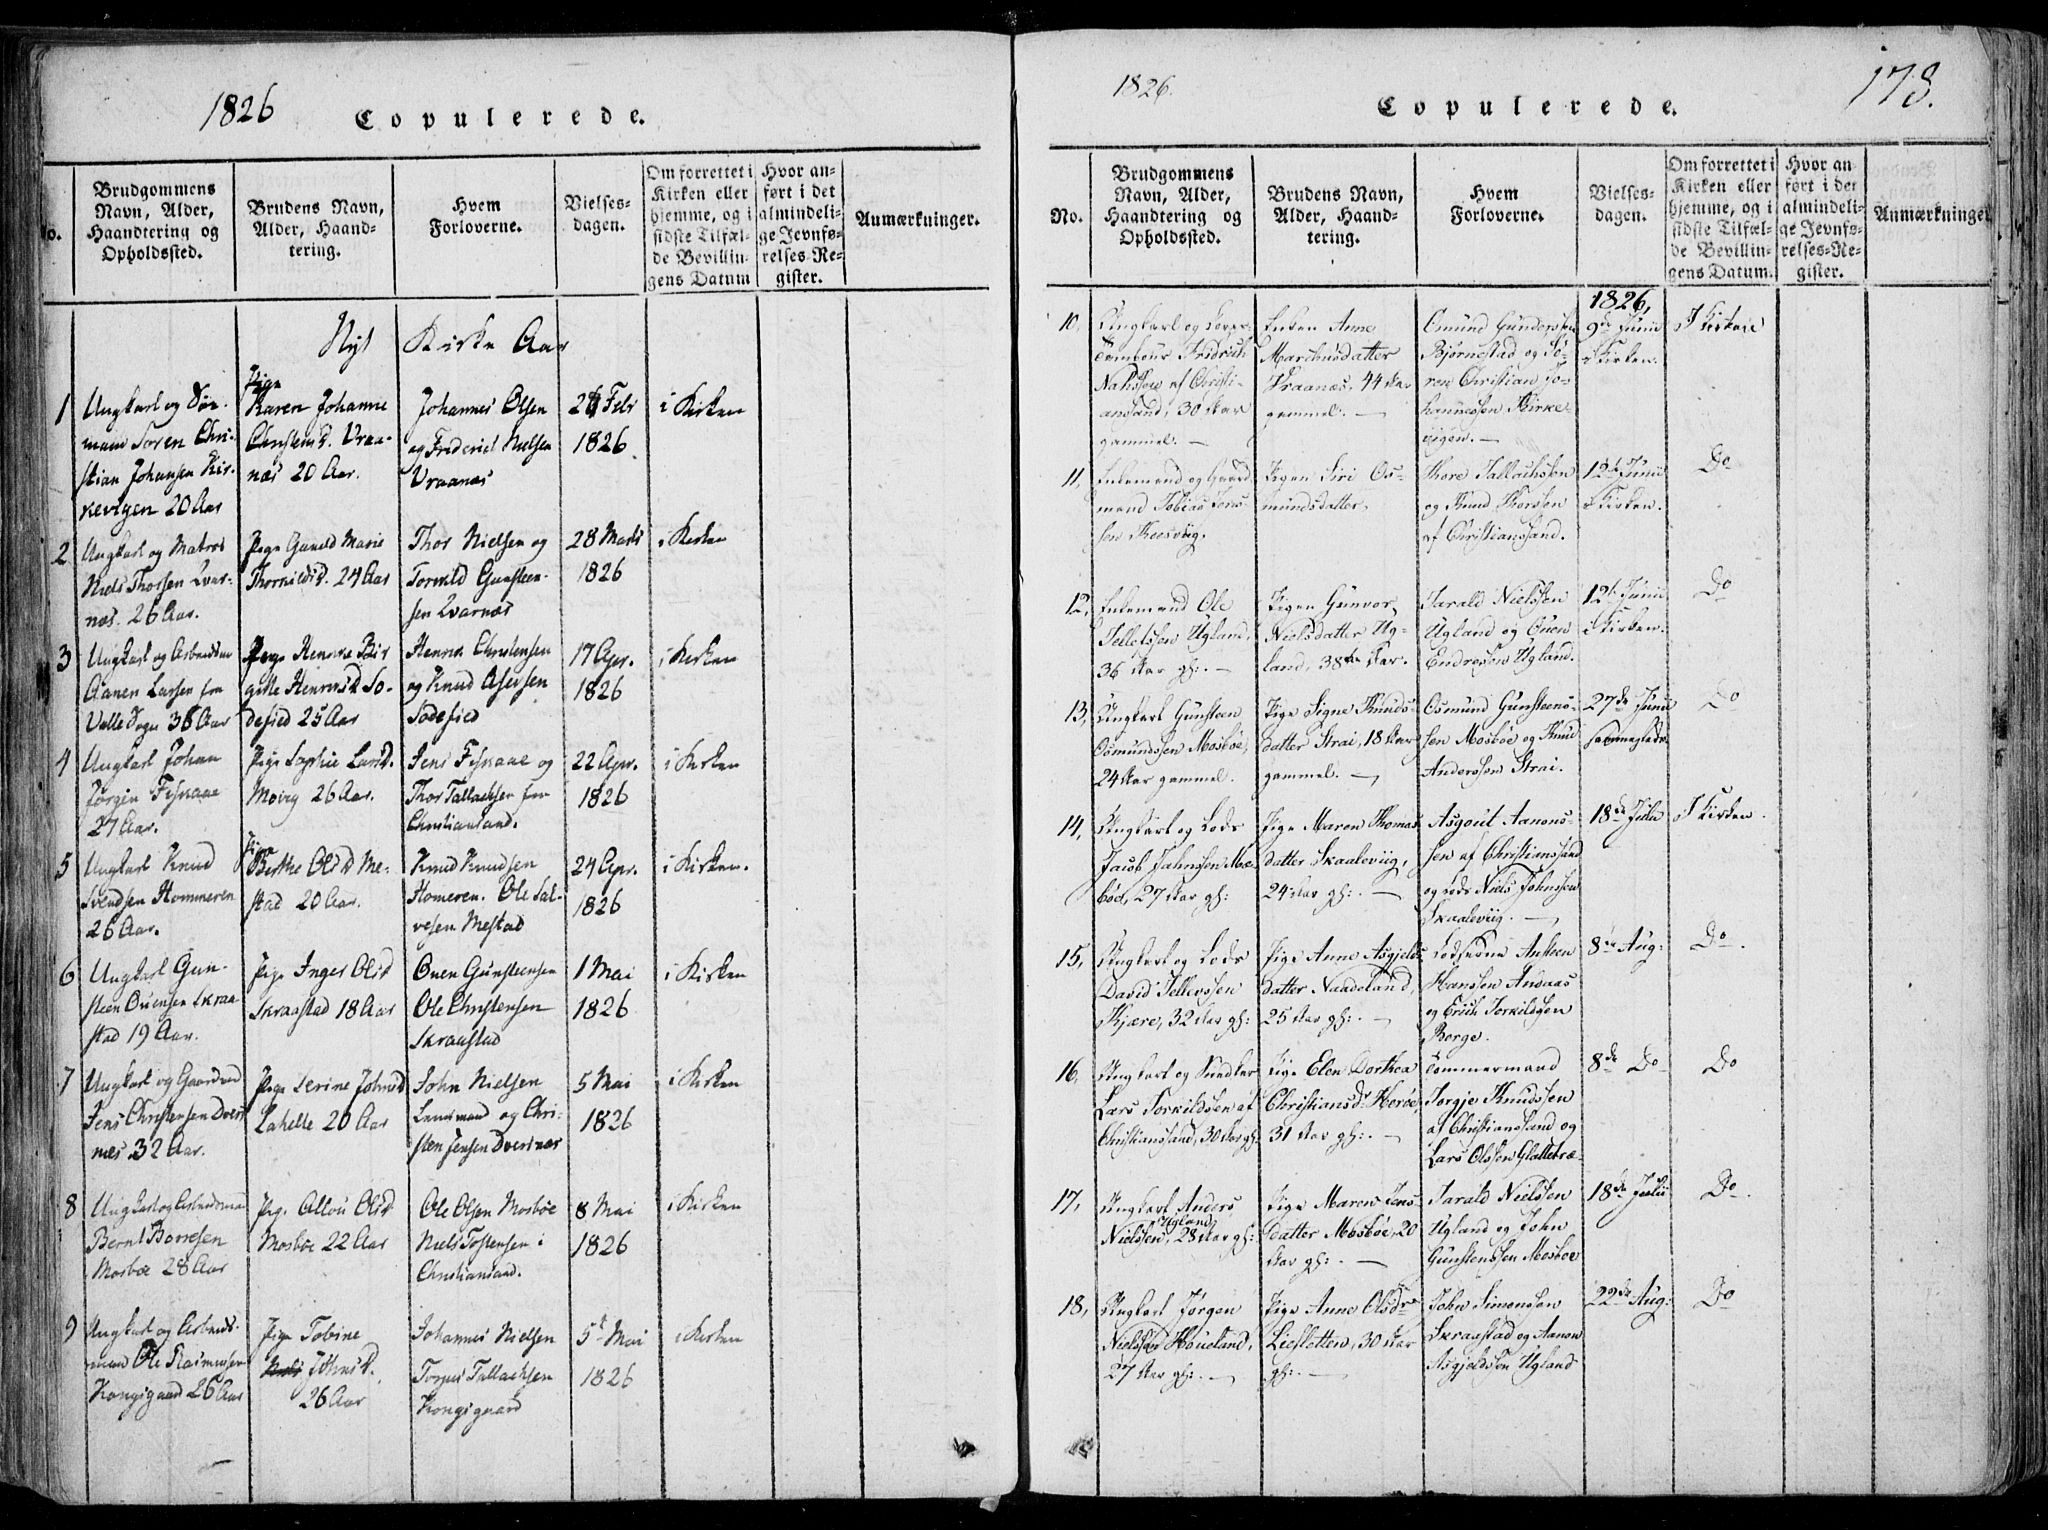 1826
Copulerede.
No.
Brudgommens
Navn, Alder,
Haandtering og
Opholdssted.
Brudens Navn,
Alder, Haand-
tering.
Hvem
Forloverne.
Vielses-
dagen.
Om forrettet i
Kirken eller
hjemme, og i
sidste Tilfæl-
de Bevillin-
gens Datum
Hvor an-
ført i det
almindeli-
ge Jevnfø-
relses-Re-
gister.
Anmærkninger.
Nyt Kirke Aar
1
Ungkarl og Søe-
mann Soren Chri-
stian Johansen Kir-
kevigen 20 Aar
Pige
Karen Johanne
Christensd. Vraa-
næs 20 Aar.
Johannes Olsen
og Friderich Nielsen
Vraanæs
Febr
1826
i Kirken
2
Ungkarl og Matros
Niels Thorsen Qvar-
næs. 26 Aar.
Pige Gunild Marie
Thorkildsd. 24 Aar
Thor Nielsen og
Torkild Gunsteen-
sen Qvarnæs
28 Marts
1826
i Kirken
3
Ungkarl og Arbeidsm
Aanen Larsen fra
Valle Sogn 36 Aar
Pige Henrike Bir
gitte Henriksd. So-
defied 25 Aar
Henrik Christensen
og Knud Asersen
Sodefied
17 Apr.
1826
i Kirken
4
Ungkarl Johan
Jørgen Fiskaae
27 Aar.
Pige Sophie Larsd.
Movig 26 Aar.
Jens Fiskaae og
Thor Tallachsen fra
Christiansand.
22 Apr.
1826
i Kirken
5
Ungkarl Knud
Svendsen Hommeren
26 Aar.
Pige
Berthe Olsd. Me-
stad 20 Aar.
Knud Knudsen
Homeren. Ole Sal-
vesen Mestad
24 Apr.
1826
i Kirken.
6
Ungkarl Gun-
steen Ouensen Skraa
stad 19 Aar.
Pige Inger Olsd
Skraastad 18 Aar
Ouen Gunsteensen
Ole Christensen
Skraastad
1 Mai
1826
i Kirken
7
Ungkarl og Gaardmd
Jens Christensen Dver
næs 32 Aar.
Pige Serine Johnsd
Lahelle 20 Aar
John Nielsen
Lensmand og Chri-
sten Jensen Dvernæs
5 Mai
1826
i Kirken
8
Ungkarl og Arbeidsma
Bernt Borresen
Mosbøe 28 Aar
Pige Allou Olsd
Mosbøe 22 Aar
Ole Olsen Mosbøe
Niels Tostensen i
Christiansand.
8 Mai
1826
i Kirken
9
Ungkarl og Arbeids-
mann Ole Rasmusen
Kongsgaard 26 Aar
Pige Tobine
Johnsd.
26 Aar
Johannes Nielsen
Torjus Tallachsen
Kongsgaard
5t Mai
1826
i Kirken
1826.
Copulerede.
178.
No.
Brudgommens
Navn, Alder,
Haandtering og
Opholdssted.
Brudens Navn,
Alder, Haand-
tering.
Hvem
Forloverne.
Vielses-
dagen.
Om forrettet i
Kirken eller
hjemme, og i
sidste Tilfæl-
de Bevillin-
gens Datum.
Hvor an-
ført i det
almindeli-
ge Jevnfø-
relses-Re-
gister.
Anmærkninger
10,
Ungkarl og
Tambour Fridrich
af Christi-
ansand, 30 Aar
gammel. —
Enken Anne
Marcusdatter
Vraanæs, 44 Aar
gammel. —
Omund Gundersen
Bjørnestad og Sø-
ren Christian Jo-
hannessen Kirke-
viigen. —
1826,
9de Junii
i Kirken.
I Kirken
11,
Enkemand og Gaard
mand Tobias Jens-
sen
Pigen Siri Os-
mundsdatter,
Thore Tallachsen
og Knud Thorsen
af Christianssand.
12te Junii
i Kirken.
Do
12,
Enkemand Ole
Tellefsen Ugland,
36 Aar gl:. —
Pigen Gunvor
Nielsdatter Ug-
land, 38te Aar.
Tarald Nielssen
Ugland og Ouen
Endresen Ugland.
12te Junii
i Kirken.
Do
13,
Ungkarl Gunsteen
Osmundssen Mosbøe,
24 Aar gammel.
Pige Signe Knuds-
datter Strai, 18 Aar
gammel. —
Osmund Gunsteens-
sen Mosbøe og Knud
Anderssen Strai.
27de Junii
sammesteds.
Do
14,
Ungkarl og Lods
Jacob Jahnssen Mæ-
bøe, 27 Aar gl:
Pige Maren Thomas
datter Skaaleviig,
24 Aar gl:. —
Asgout Aanons-
sen af Christianssand
og Lods Niels Johnssen
Skaaleviig. —
18de Julii
I Kirken.
15,
Ungkarl og Lods
David Tellefssen
Kjære, 32 Aar gl:
Pige Anne Asgjelds
datter Naadeland,
25 Aar gl:. —
Lodserne Ansteen
Hanssen Andaas
og Erich Torkildsen
Borge.
8de Aug:
Do.
16,
Ungkarl og Snedker
Lars Torkildsen af
Christianssand, 30 Aar gl:
Pige Elen Dorthea
Christiansd: Herøe,
31 Aar gl:. —
Tømmermand
Torgje Knudssen
af Christianssand og
Lars Olssen Glattetræ-
8de Do
Do
17,
Ungkarl Anders
Ugland
Nielssen, 28 Aar gl:
Pige Maren Jens-
datter Mosbøe, 20
Aar gl:. —
Tarald Nielssen
Ugland og John
Gunstenssen Mosboe
18de Julii
Do.
18,
Ungkarl Jørgen
Nielssen Houeland,
27 Aar gl:. —
Pige Anne Olsdr
Liesletten, 30 Aar
gl:. —
John Simonssen
Skraastad og Aanon
Asgjeldssen Ugland
22de Aug:
Do